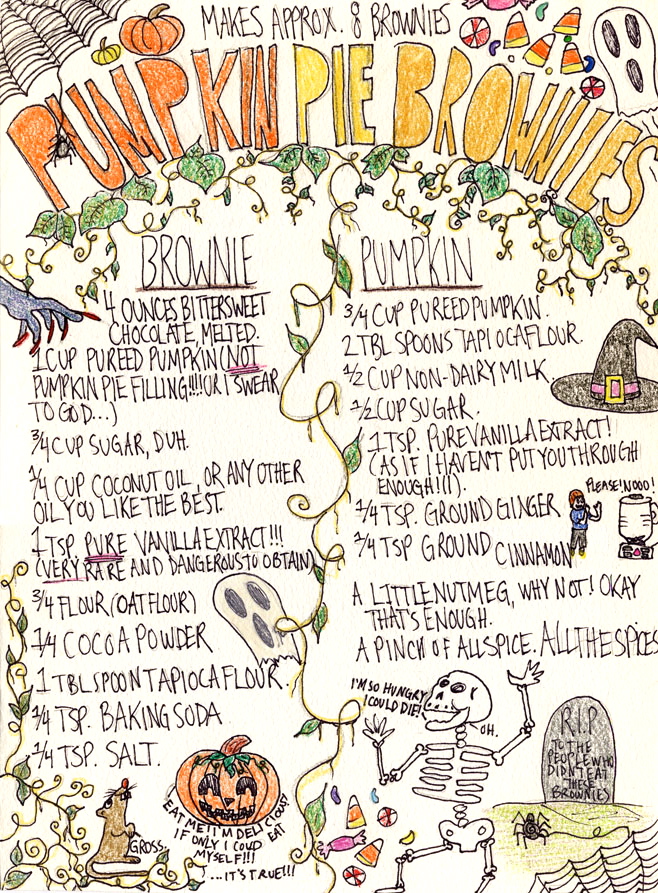 MAKES APPROX. 8 BROWNIES
PUMPKIN PIE BROWNIES
BROWNIE
4 OUNCES BITTERSWEET
CHOCOLATE, MELTED.
1 CUP PUREED PUMPKIN (NOT
PUMPKIN PIE FILLING!!!! OR I SWEAR
TO GOD...)
3/4 CUP SUGAR, DUH.
1/4 CUP COCONUT OIL, OR ANY OTHER
OIL YOU LIKE THE BEST.
1 TSP. PURE VANILLA EXTRACT!!!
(VERY RARE AND DANGEROUS TO OBTAIN)
3/4 FLOUR (OAT FLOUR)
1/4 COCOA POWDER
1 TBLSPOON TAPIOCA FLOUR
1/4 TSP. BAKING SODA
1/4 TSP. SALT.
GROSS.
EAT ME!! I'M DELICIOUS!
IF ONLY I COUD EAT
MYSELF!!!
...IT'S TRUE!!!
PUMPKIN
3/4 CUP PUREED PUMPKIN.
2 TBL SPOONS TAPIOCA FLOUR.
1/2 CUP NON-DAIRY MILK
1/2 CUP SUGAR.
1 TSP. PURE VANILLA EXTRACT!
(AS IF I HAVEN'T PUT YOU THROUGH
ENOUGH!(!).
PLEASE! NOOO!
1/4 TSP. GROUND GINGER
1/4 TSP GROUND CINNAMON
A LITTLE NUTMEG, WHY NOT! OKAY
THAT'S ENOUGH.
A PINCH OF ALLSPICE. ALL THE SPICES
I'M SO HUNGRY
I COULD DIE!
OH.
R.I.P
TO THE
PEOPLE WHO
DIDN'T EAT
THESE
BROWNIES